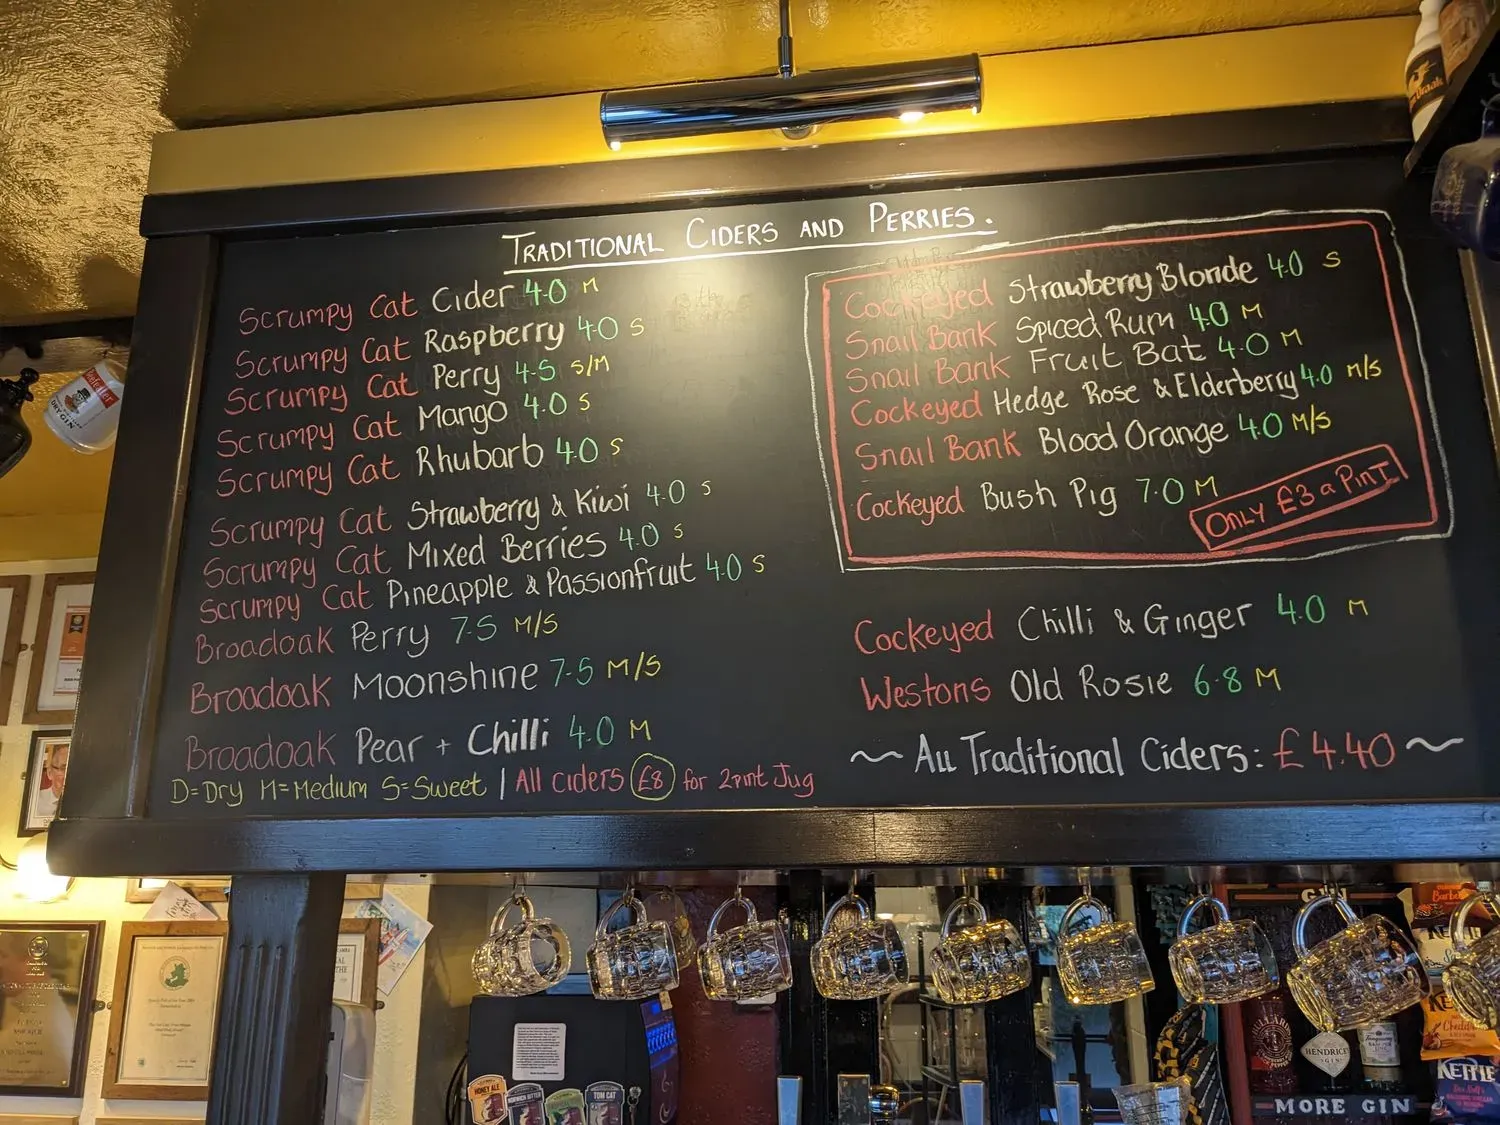 TRADITIONAL CIDERS AND PERRIES.
Scrumpy Cat Cider 4.0 M
Scrumpy Cat Raspberry 4.0 S
Scrumpy Cat Perry 4.5 S/M
Scrumpy Cat Mango 4.0 S
Scrumpy Cat Rhubarb 4.0 S
Scrumpy Cat Strawberry & Kiwi 4.0 S
Scrumpy Cat Mixed Berries 4.0 S
Scrumpy Cat Pineapple & Passionfruit 4.0 S
Broadoak Perry 7.5 M/S
Broadoak Moonshine 7.5 M/S
Broadoak Pear + Chilli 4.0 M
D=Dry M=Medium S=Sweet | All ciders £8 for 2pint Jug
Cockeyed Strawberry Blonde 4.0 S
Snail Bank Spiced Rum 4.0 M
Snail Bank Fruit Bat 4.0 M
Cockeyed Hedge Rose & Elderberry 4.0 M/S
Snail Bank Blood Orange 4.0 M/S
Cockeyed Bush Pig 7.0 M
ONLY £3 a PINT
Cockeyed Chilli & Ginger 4.0 M
Westons Old Rosie 6.8 M
~ All Traditional Ciders: £4.40 ~
DRY GIN
HONEY ALE
TOM CAT
GIN
HENDRICK'S
GIN
MORE GIN
KETTLE